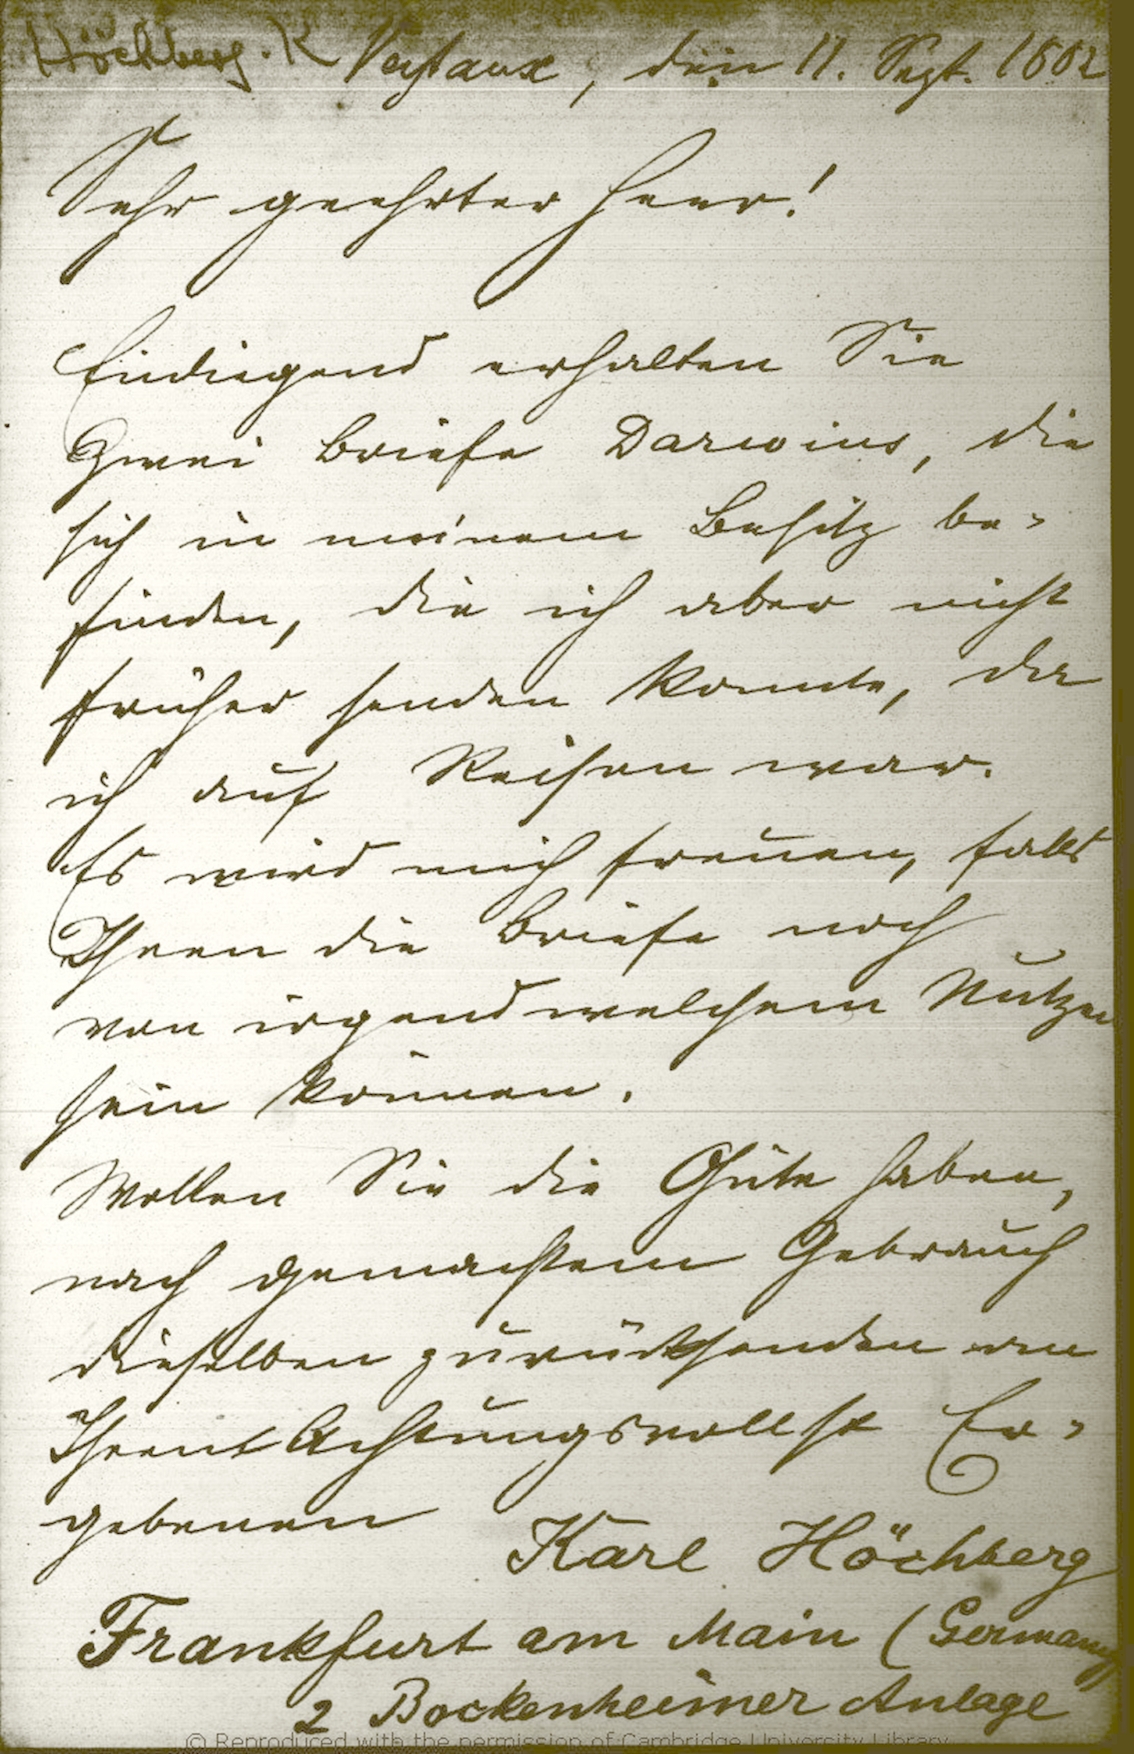 Höchberg. K
den 11. Sept. 1882
Sehr geehrter Herr!
Einliegend erhalten Sie
zwei Briefe Darwins, die
sich in meinem Besitz be-
finden, die ich aber nicht
früher senden konnte, da
ich auf Reisen war.
Es wird mich freuen, falls
Ihnen die Briefe noch
von irgend welchem Nutzen
sein können.
Wollen Sie die Güte haben,
nach gemachtem Gebrauch
dieselben zurücksenden an
Ihren Achtungsvollst Er-
gebenen
Karl Höchberg
Frankfurt am Main (Germany
2 Bockenheimer Anlage
© Reproduced with the permission of Cambridge University Library